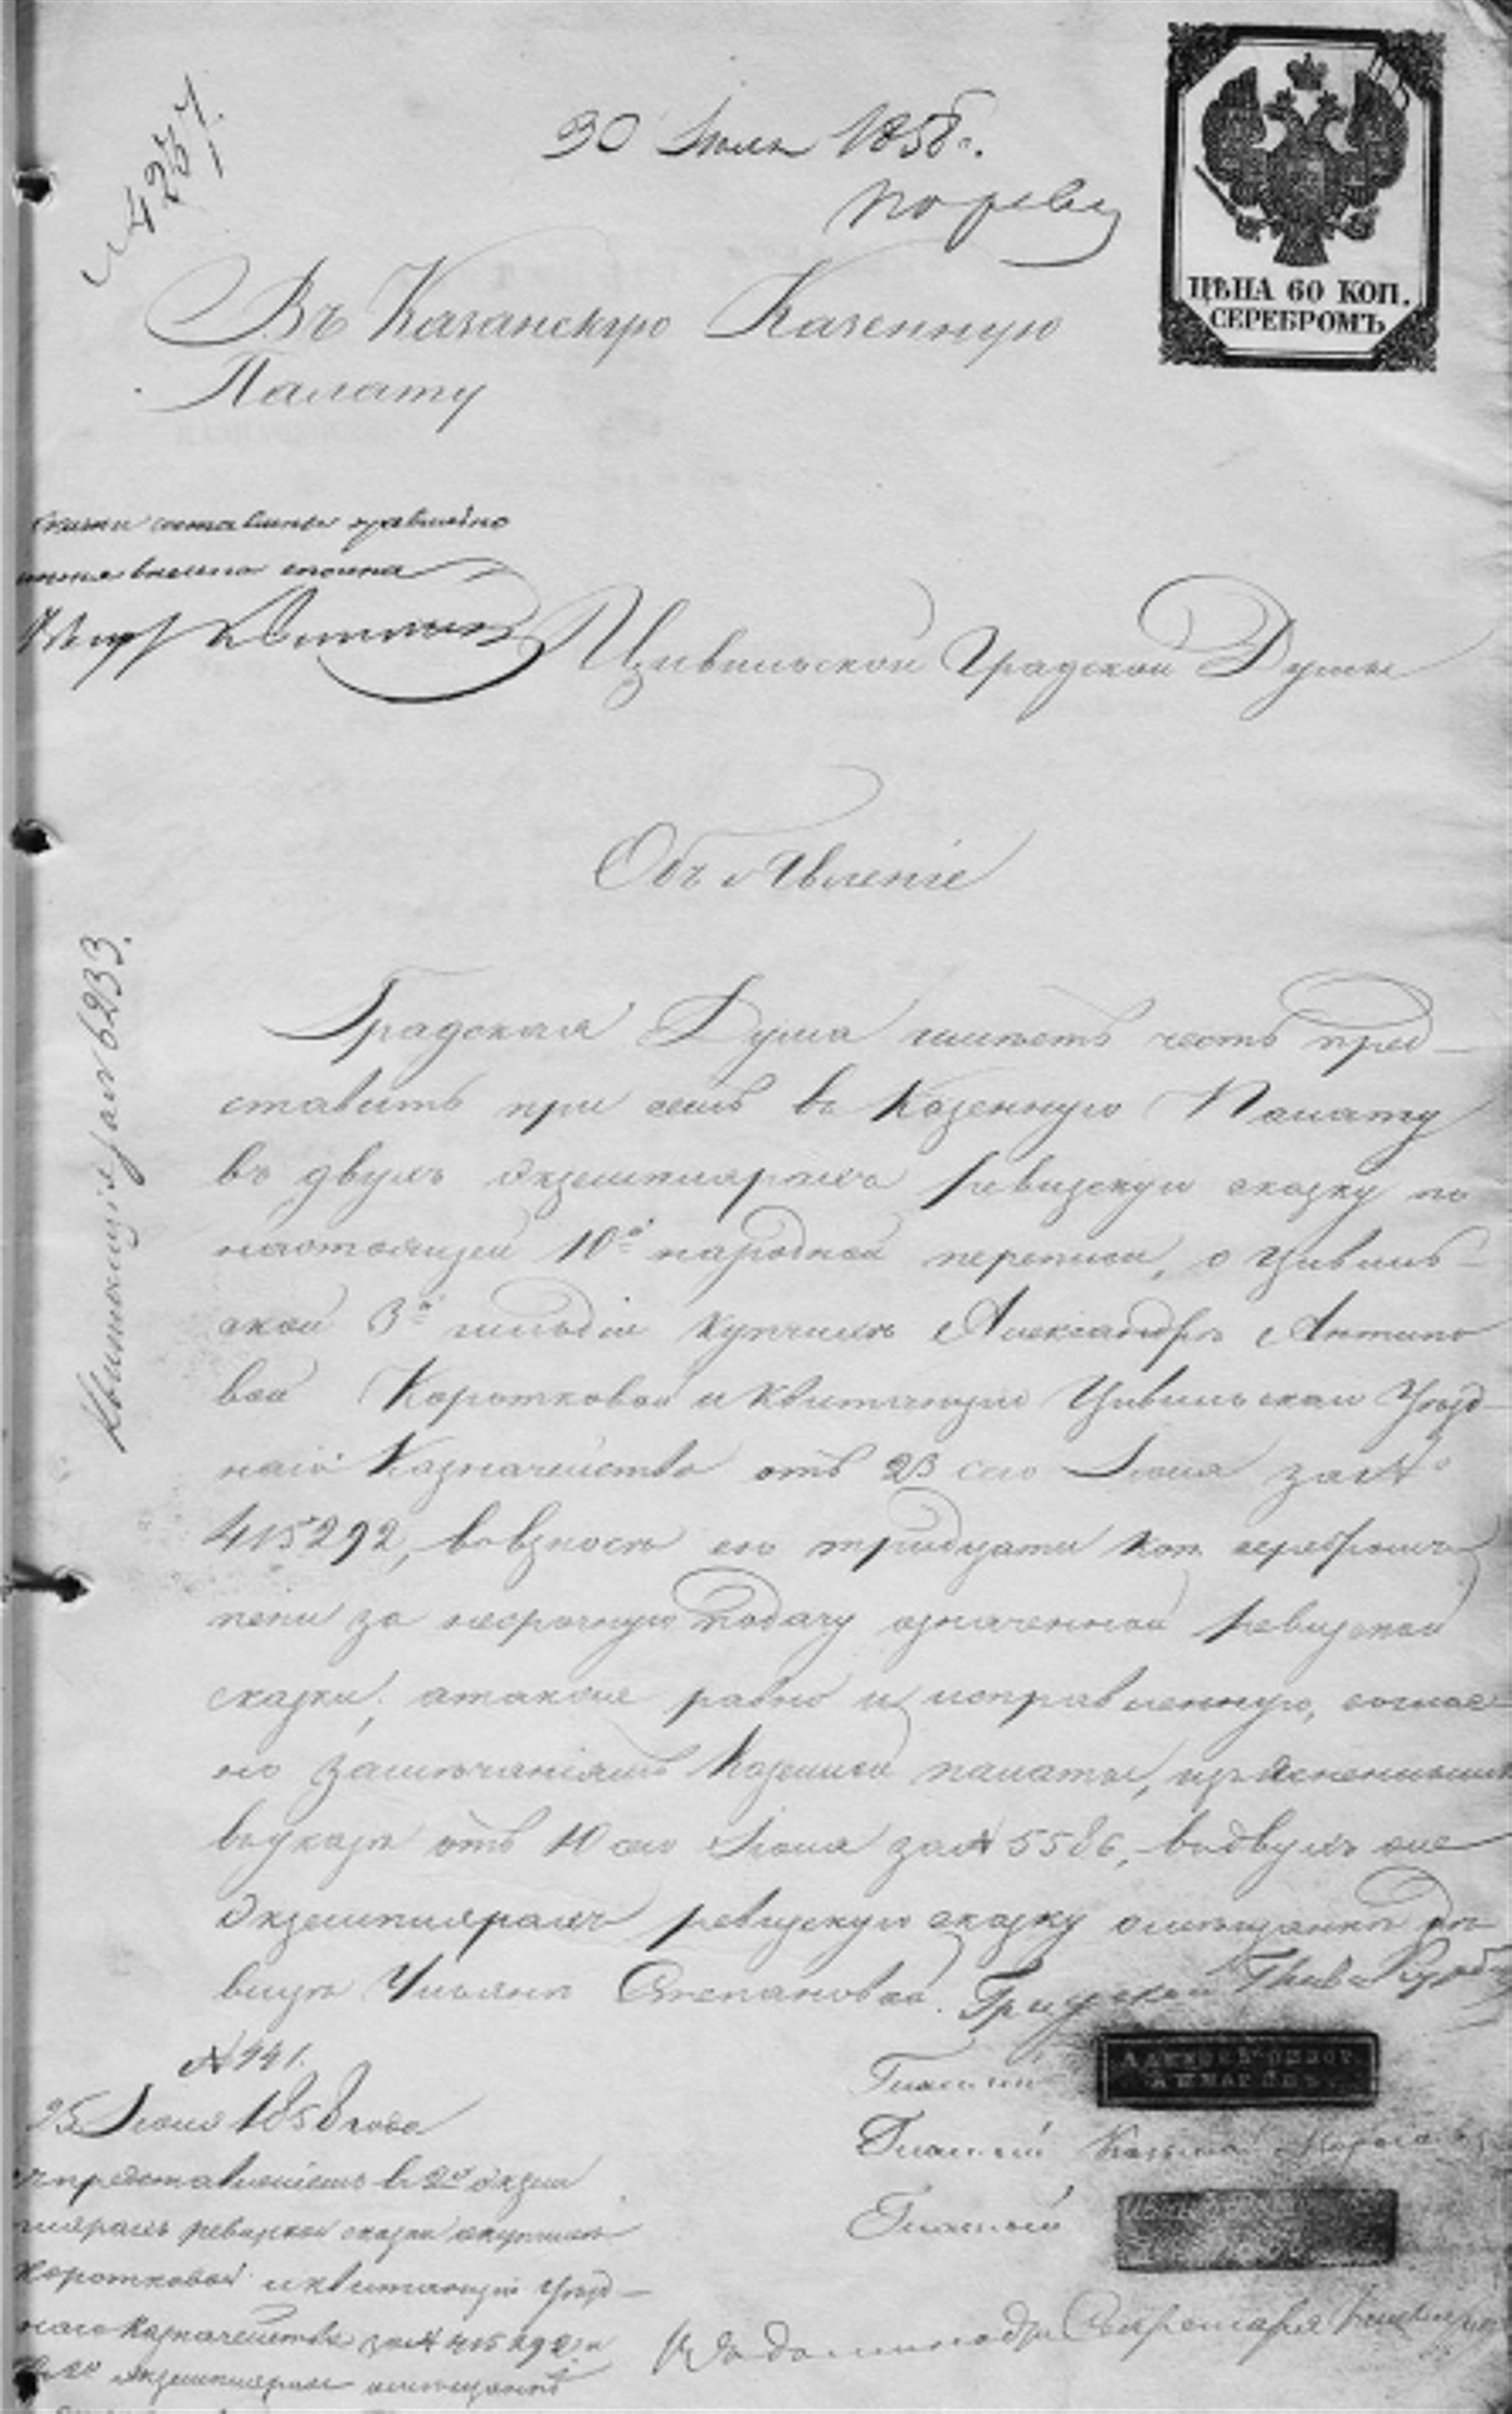 № 4237.
30 Июня 1858 г.
по реви
ЦѢНА 60 КОП.
СЕРЕБРОМЪ
Въ Казанскую Казенную
Палату
составлены правильно
Цивильской Градской Думы
Объявленіе
Градская Дума имѣетъ честь пред-
ставить при семъ въ Казенную Палату
въ двухъ экземплярахъ ревизскую сказку по
настоящей 10й народной переписи, о Цивиль-
ской 3й гильдіи купчихѣ Александрѣ Антипо
вой Коротковой и квитанцію Цивильскаго Уѣзд-
наго Казначейства отъ 23 сего Іюня за №
415292, во взносѣ ею тридцати коп. серебромъ
пени за несрочную подачу означенной ревизской
сказки, а также равно и исправленную, соглас-
но замѣчаніямъ Казенной палаты, изъясненнымъ
въ указѣ отъ 10 сего Іюня за № 5586, въ двухъ же
экземплярахъ ревизскую сказку о мѣщанкѣ дѣ-
вицѣ Ульянѣ Степановой. Градской Глава
Гласный
Гласный Козьма
Гласный
№ 441.
25 Іюня 1858 года
представленіемъ въ 2х экзем
плярахъ ревизской сказки о купчихѣ
Коротковой и квитанціи Уѣзд-
наго Казначейства за № 415292 и
въ 2х экземплярахъ о мѣщанкѣ
Секретаря
Квитанція за № 6233.